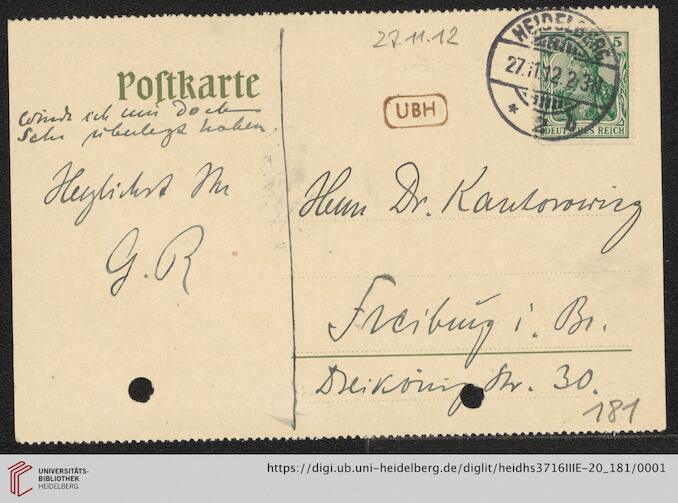 27.11.12
HEIDELBERG
5
27.11.12. 2-3N
* 2 b
DEUTSCHES REICH
Postkarte
UBH
würde ich mir doch
sehr überlegt haben.
Herzlichst Ihr
G. R
Herrn Dr. Kantorowicz
Freiburg i. Br.
Dreikönigstr. 30.
181
UNIVERSITÄTS-
BIBLIOTHEK
HEIDELBERG
https://digi.ub.uni-heidelberg.de/diglit/heidhs3716IIIE-20_181/0001